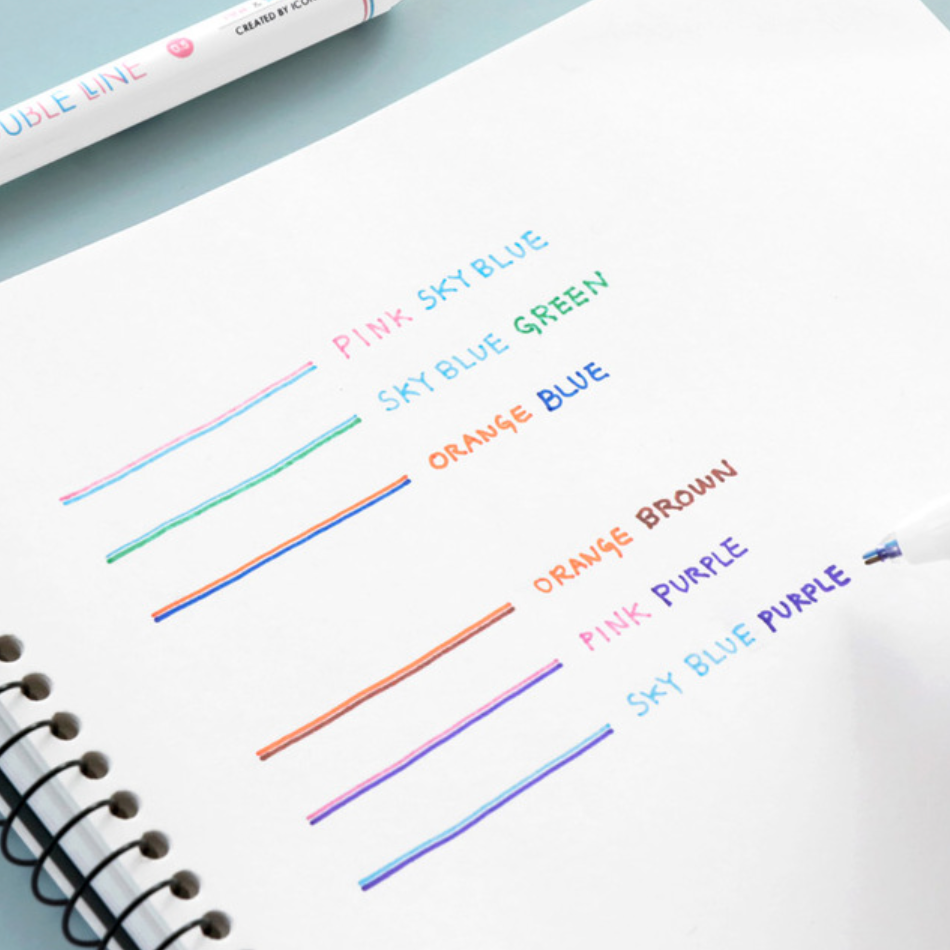 UBLE LINE
0.5
CREATED BY ICON
PINK SKY BLUE
SKY BLUE GREEN
ORANGE BLUE
ORANGE BROWN
PINK PURPLE
SKY BLUE PURPLE